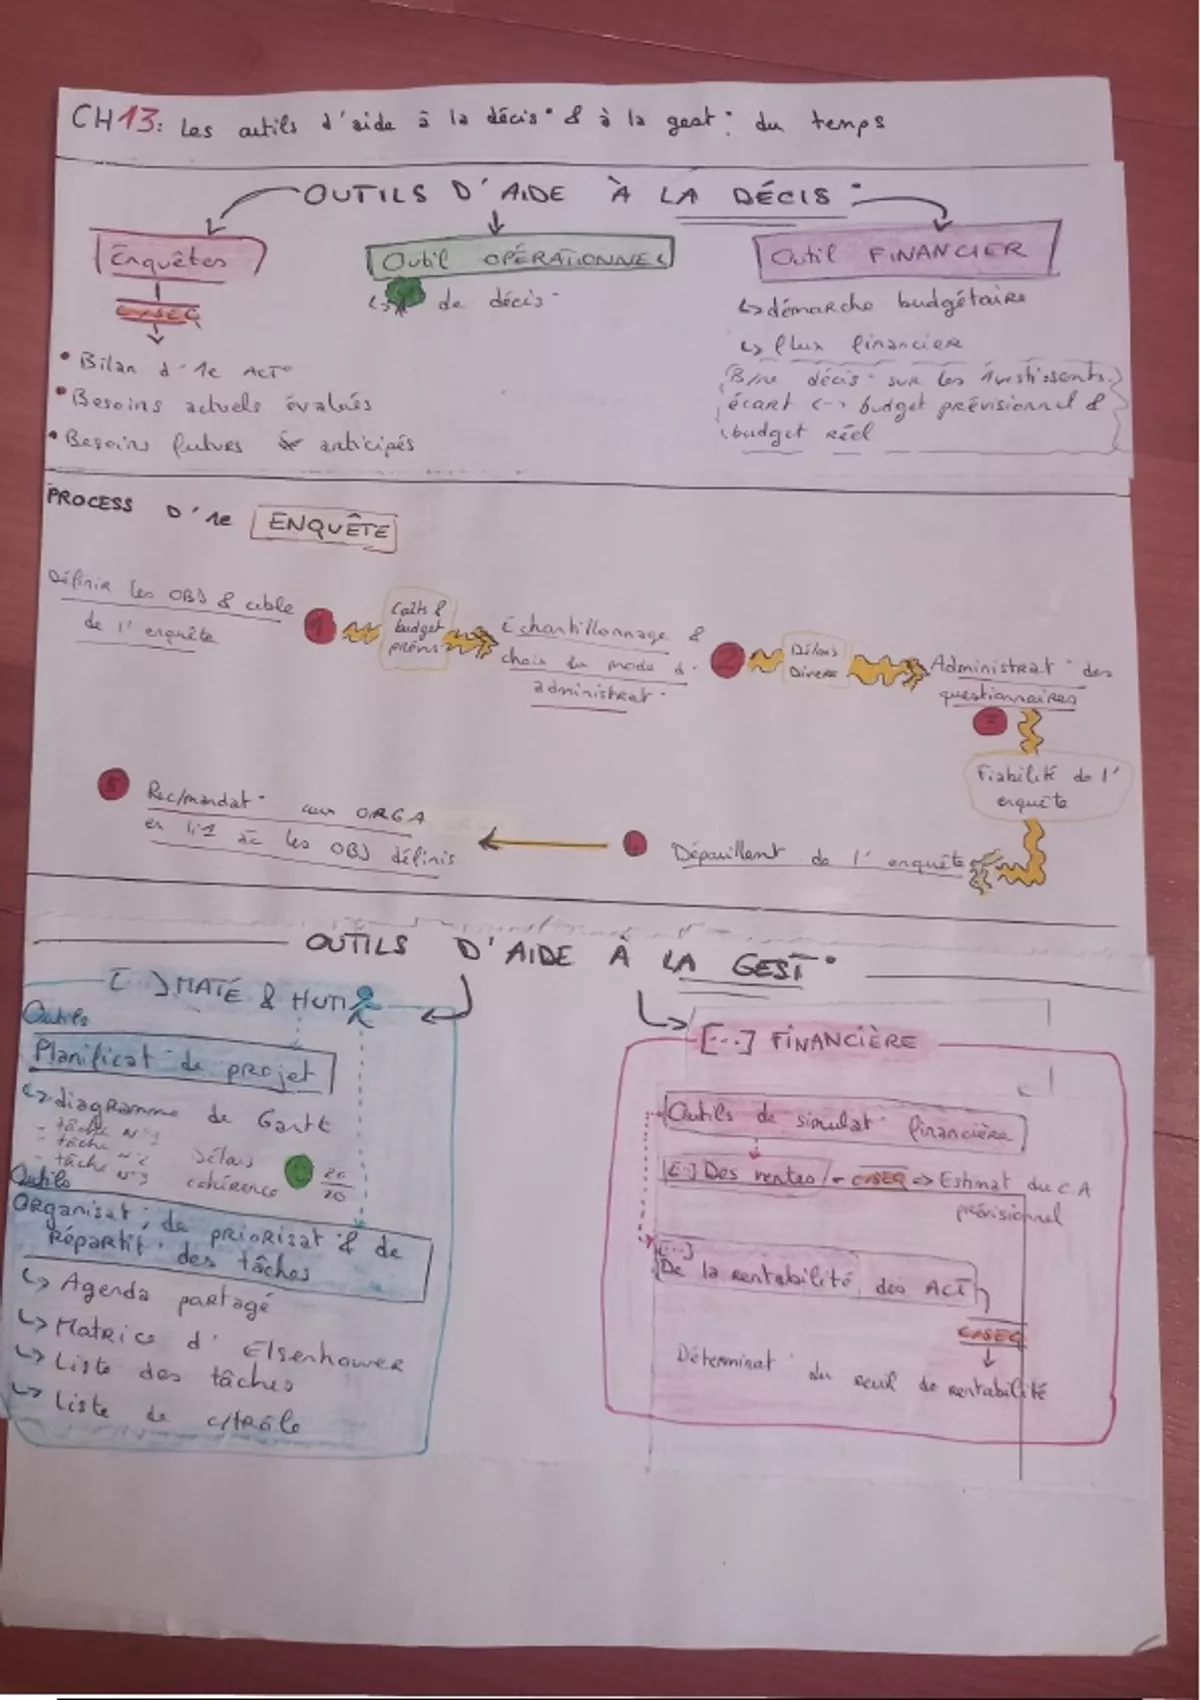 CH13: Les outils d'aide à la décis° & à la gest° du temps
OUTILS D'AIDE À LA DÉCIS°
Enquêtes
Outil OPÉRATIONNEL
Outil FINANCIER
CPSEQ
↳ de décis°
↳ démarche budgétaire
↳ flux financiers
• Bilan d'1e ACT°
• Besoins actuels évalués
• Besoins futurs anticipés
décis° sur les
écart <-> budget prévisionnel &
budget réel
PROCESS D'1e ENQUÊTE
Définir les OBJ & cible
de l'enquête
1
Coûts &
budget
prévis°
Echantillonnage &
choix du mode d'
administrat°
2
Délais
Divers
Administrat° des
questionnaires
3
Fiabilité de l'
enquête
Dépouillent de l'enquête
5
Rec/mandat° aux ORGA
les OBJ définis
OUTILS D'AIDE À LA GEST°
[..] MATÉ & HUM
Outils
Planificat° de projet
↳ diagramme de Gantt
- tâche N°1
- tâche N°2
- tâche N°3
Délais
cohérence
20
20
Outils
Organisat°, de priorisat° & de
Répartit° des tâches
↳ Agenda partagé
↳ Matrice d'EIsenhower
↳ Liste des tâches
↳ Liste de c/trôle
[...] FINANCIÈRE
Outils de simulat° financière
[...] Des ventes
CPSEQ => Estimat° du C.A
prévisionnel
[...]
De la rentabilité des ACT°
CPSEQ
Déterminat° du seuil de rentabilité